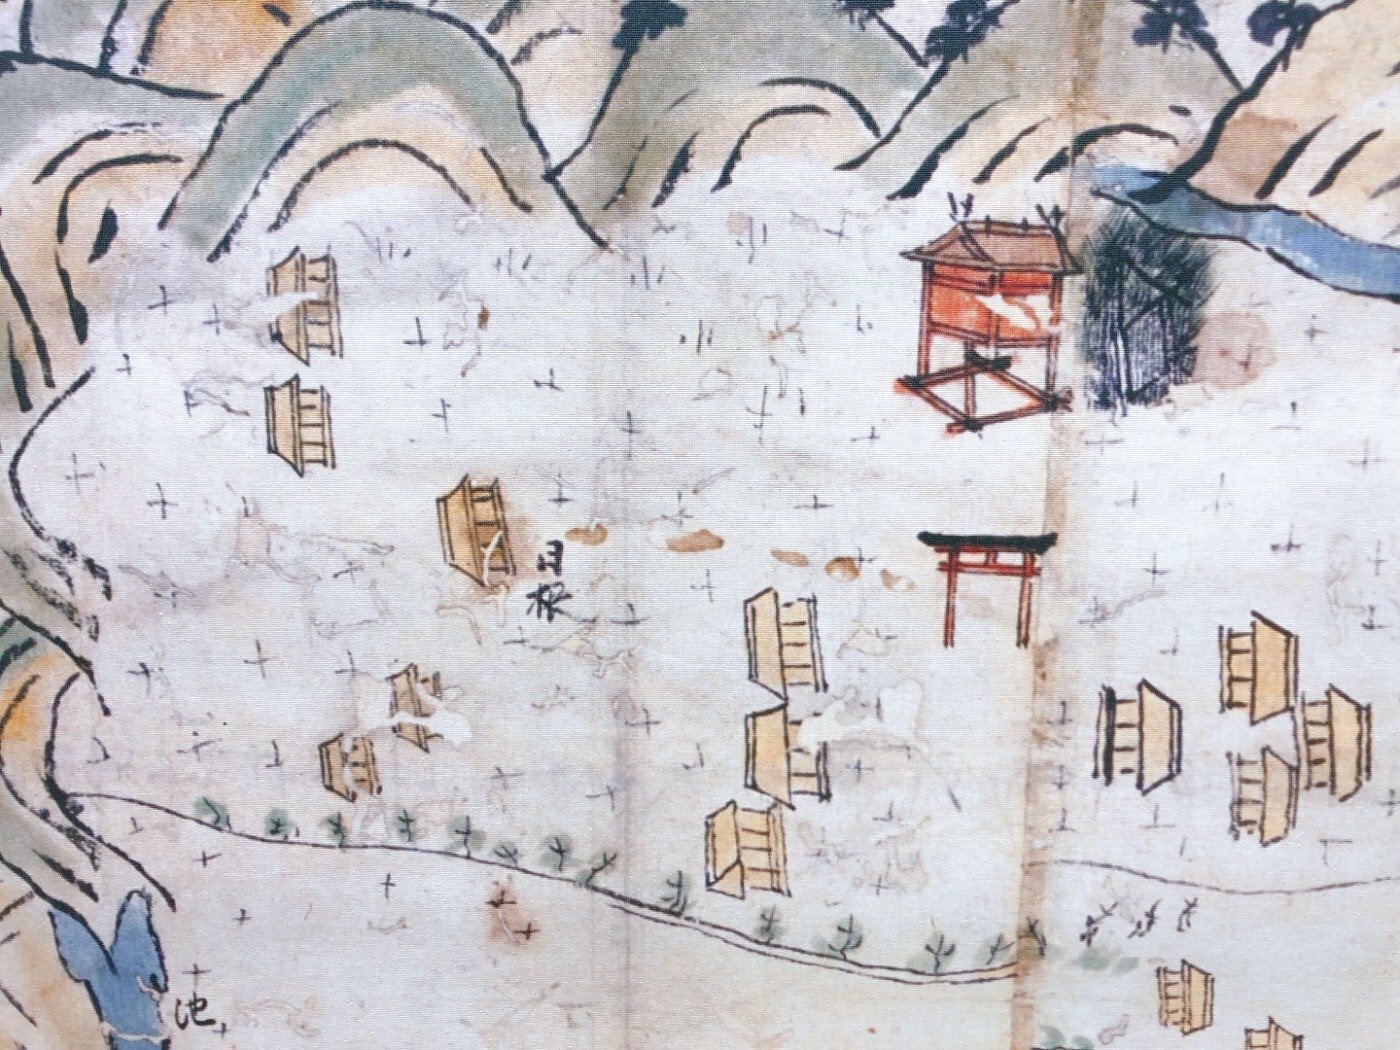 日根
池